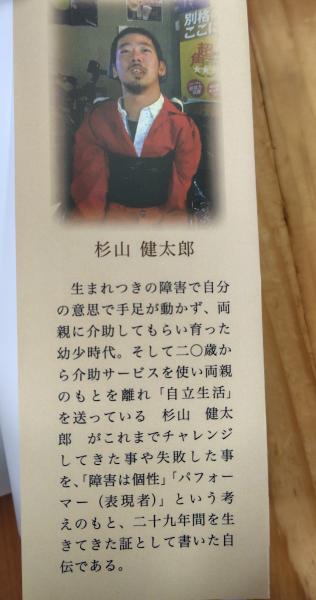 別格
ここに
超
杉山 健太郎
生まれつきの障害で自分
の意思で手足が動かず、両
親に介助してもらい育った
幼少時代。そして二〇歳か
ら介助サービスを使い両親
のもとを離れ「自立生活」
を送っている　杉山　健太
郎　がこれまでチャレンジ
してきた事や失敗した事
を、「障害は個性」「パフォー
マー（表現者）」という考
えのもと、二十九年間を生
きてきた証として書いた自
伝である。